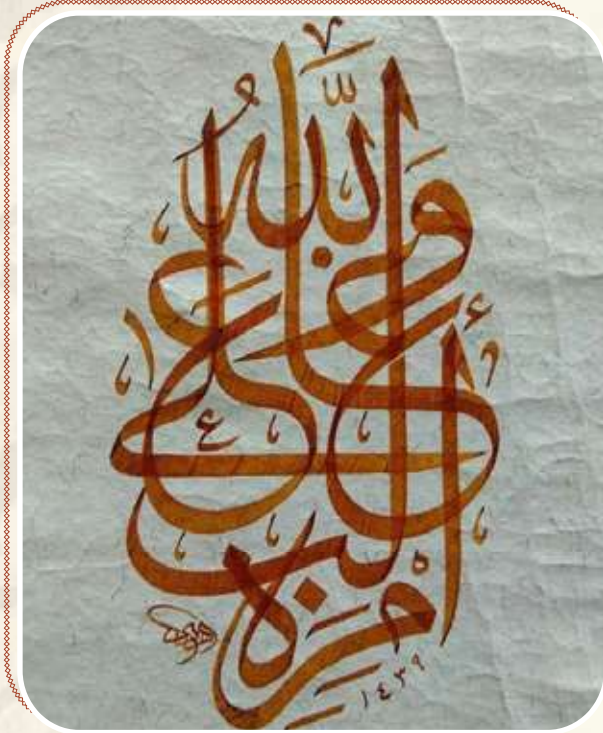 وَاللَّهُ غَالِبٌ عَلَىٰ أَمْرِهِ
١٤٣٩